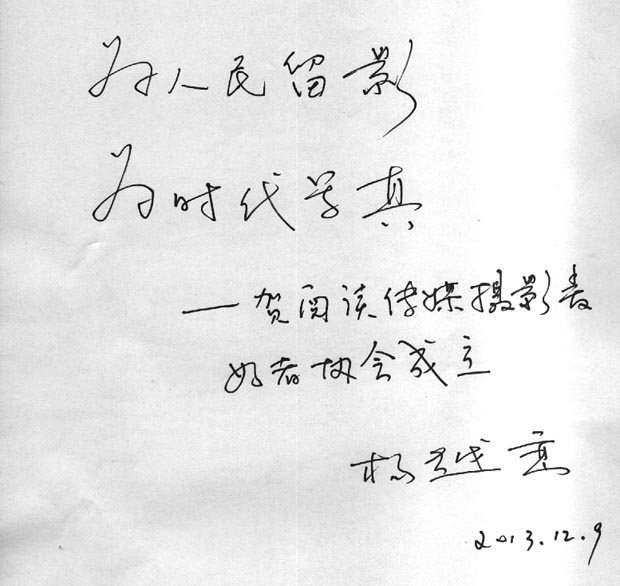 为人民留影
为时代写真
—贺阅读传媒摄影爱
好者协会成立
杨越峦
2013.12.9